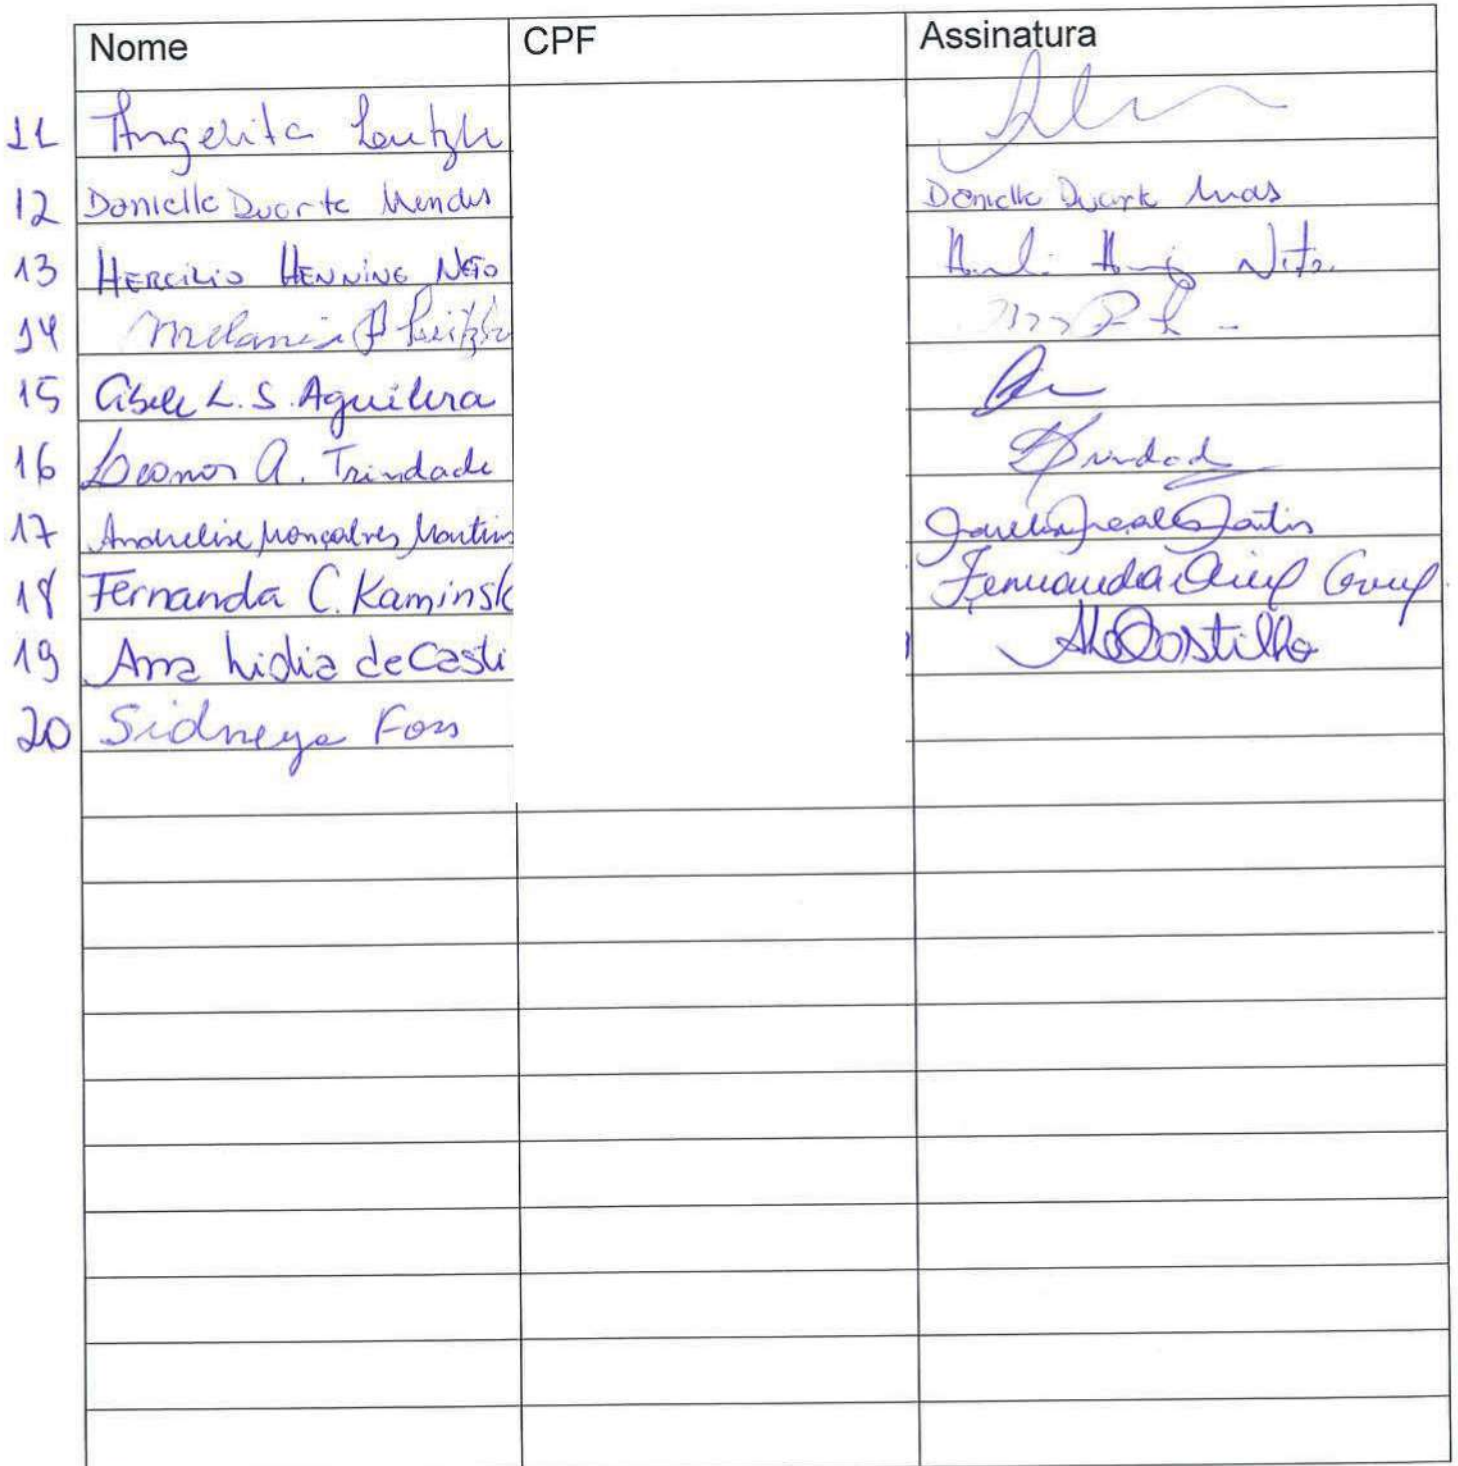 Nome CPF Assinatura
11 Angelita
12 Danielle Duarte Mendes Danielle Duarte
13 HERCILIO HENNING NETO Neto.
14 Melanie P
15 Cibele L. S. Aguilera
16 Leonor A. Trindade Trindade
17 Andrelise Gonçalves Martins
18 Fernanda C. Kaminsk Fernanda
19 Ana Lidia de Casti
20 Sidneya Foss